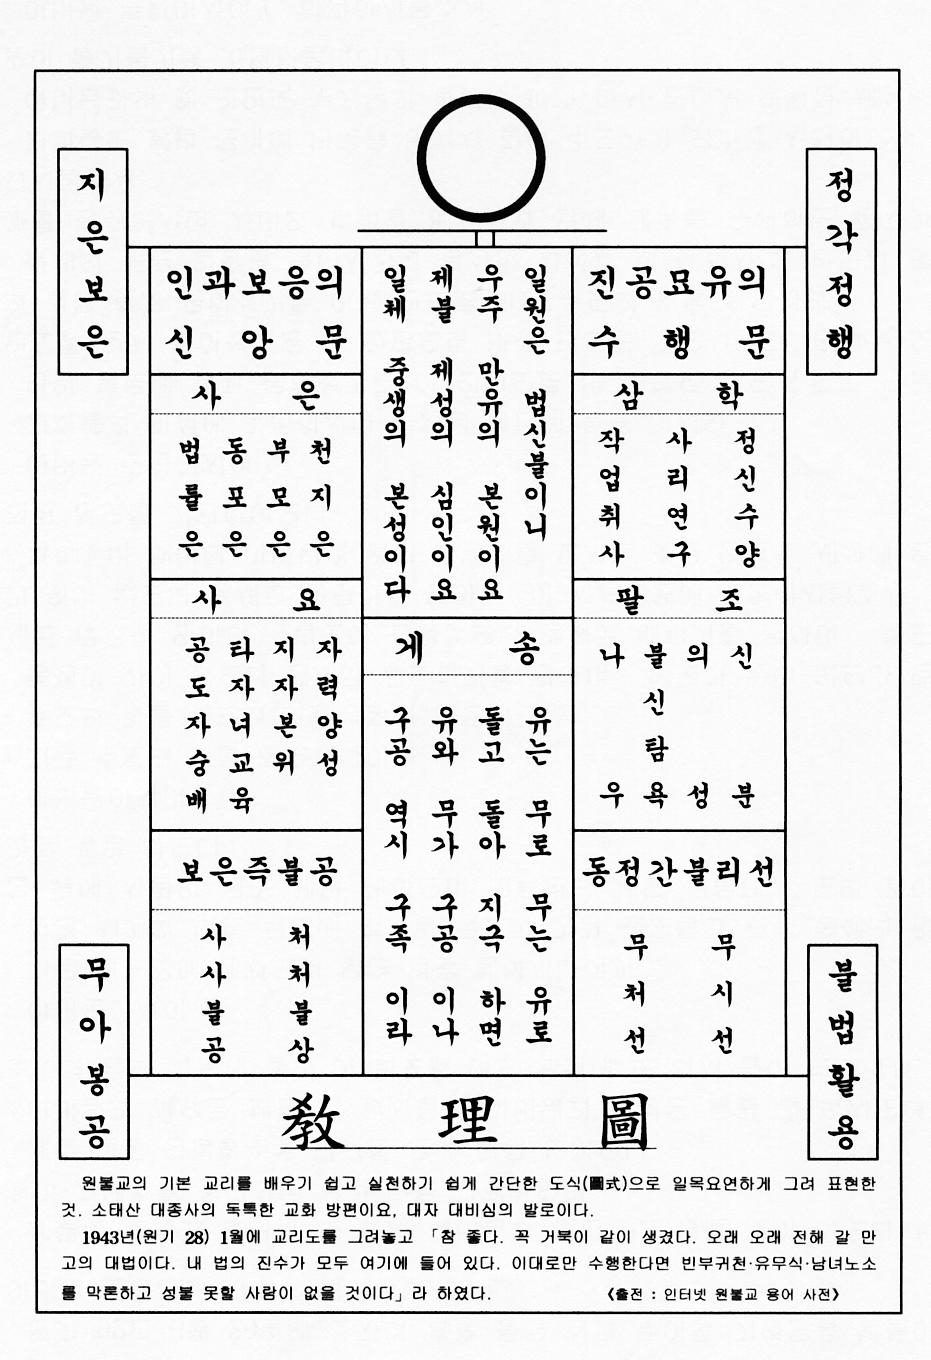 정각정행
지은보은
진공묘유의
수행문
삼학
정신수양
사리연구
작업취사
팔조
신 분
의 성
불신 탐욕
나 우
동정간불리선
무시선
무처선
일원은 법신불이니
우주 만유의 본원이요
제불 제성의 심인이요
일체 중생의 본성이다
게송
유는 무로 무는 유로
돌고 돌아 지극하면
유와 무가 구공이나
구공 역시 구족이라
인과보응의
신앙문
사은
천지은
부모은
동포은
법률은
사요
자력양성
지자본위
타자녀교육
공도자숭배
보은즉불공
처처불상
사사불공
불법활용
무아봉공
敎理圖
원불교의 기본 교리를 배우기 쉽고 실천하기 쉽게 간단한 도식(圖式)으로 일목요연하게 그려 표현한
것. 소태산 대종사의 독특한 교화 방편이요, 대자 대비심의 발로이다.
1943년(원기 28) 1월에 교리도를 그려놓고 「참 좋다. 꼭 거북이 같이 생겼다. 오래 오래 전해 갈 만
고의 대법이다. 내 법의 진수가 모두 여기에 들어 있다. 이대로만 수행한다면 빈부귀천·유무식·남녀노소
를 막론하고 성불 못할 사람이 없을 것이다」라 하였다.
《출전 : 인터넷 원불교 용어 사전》